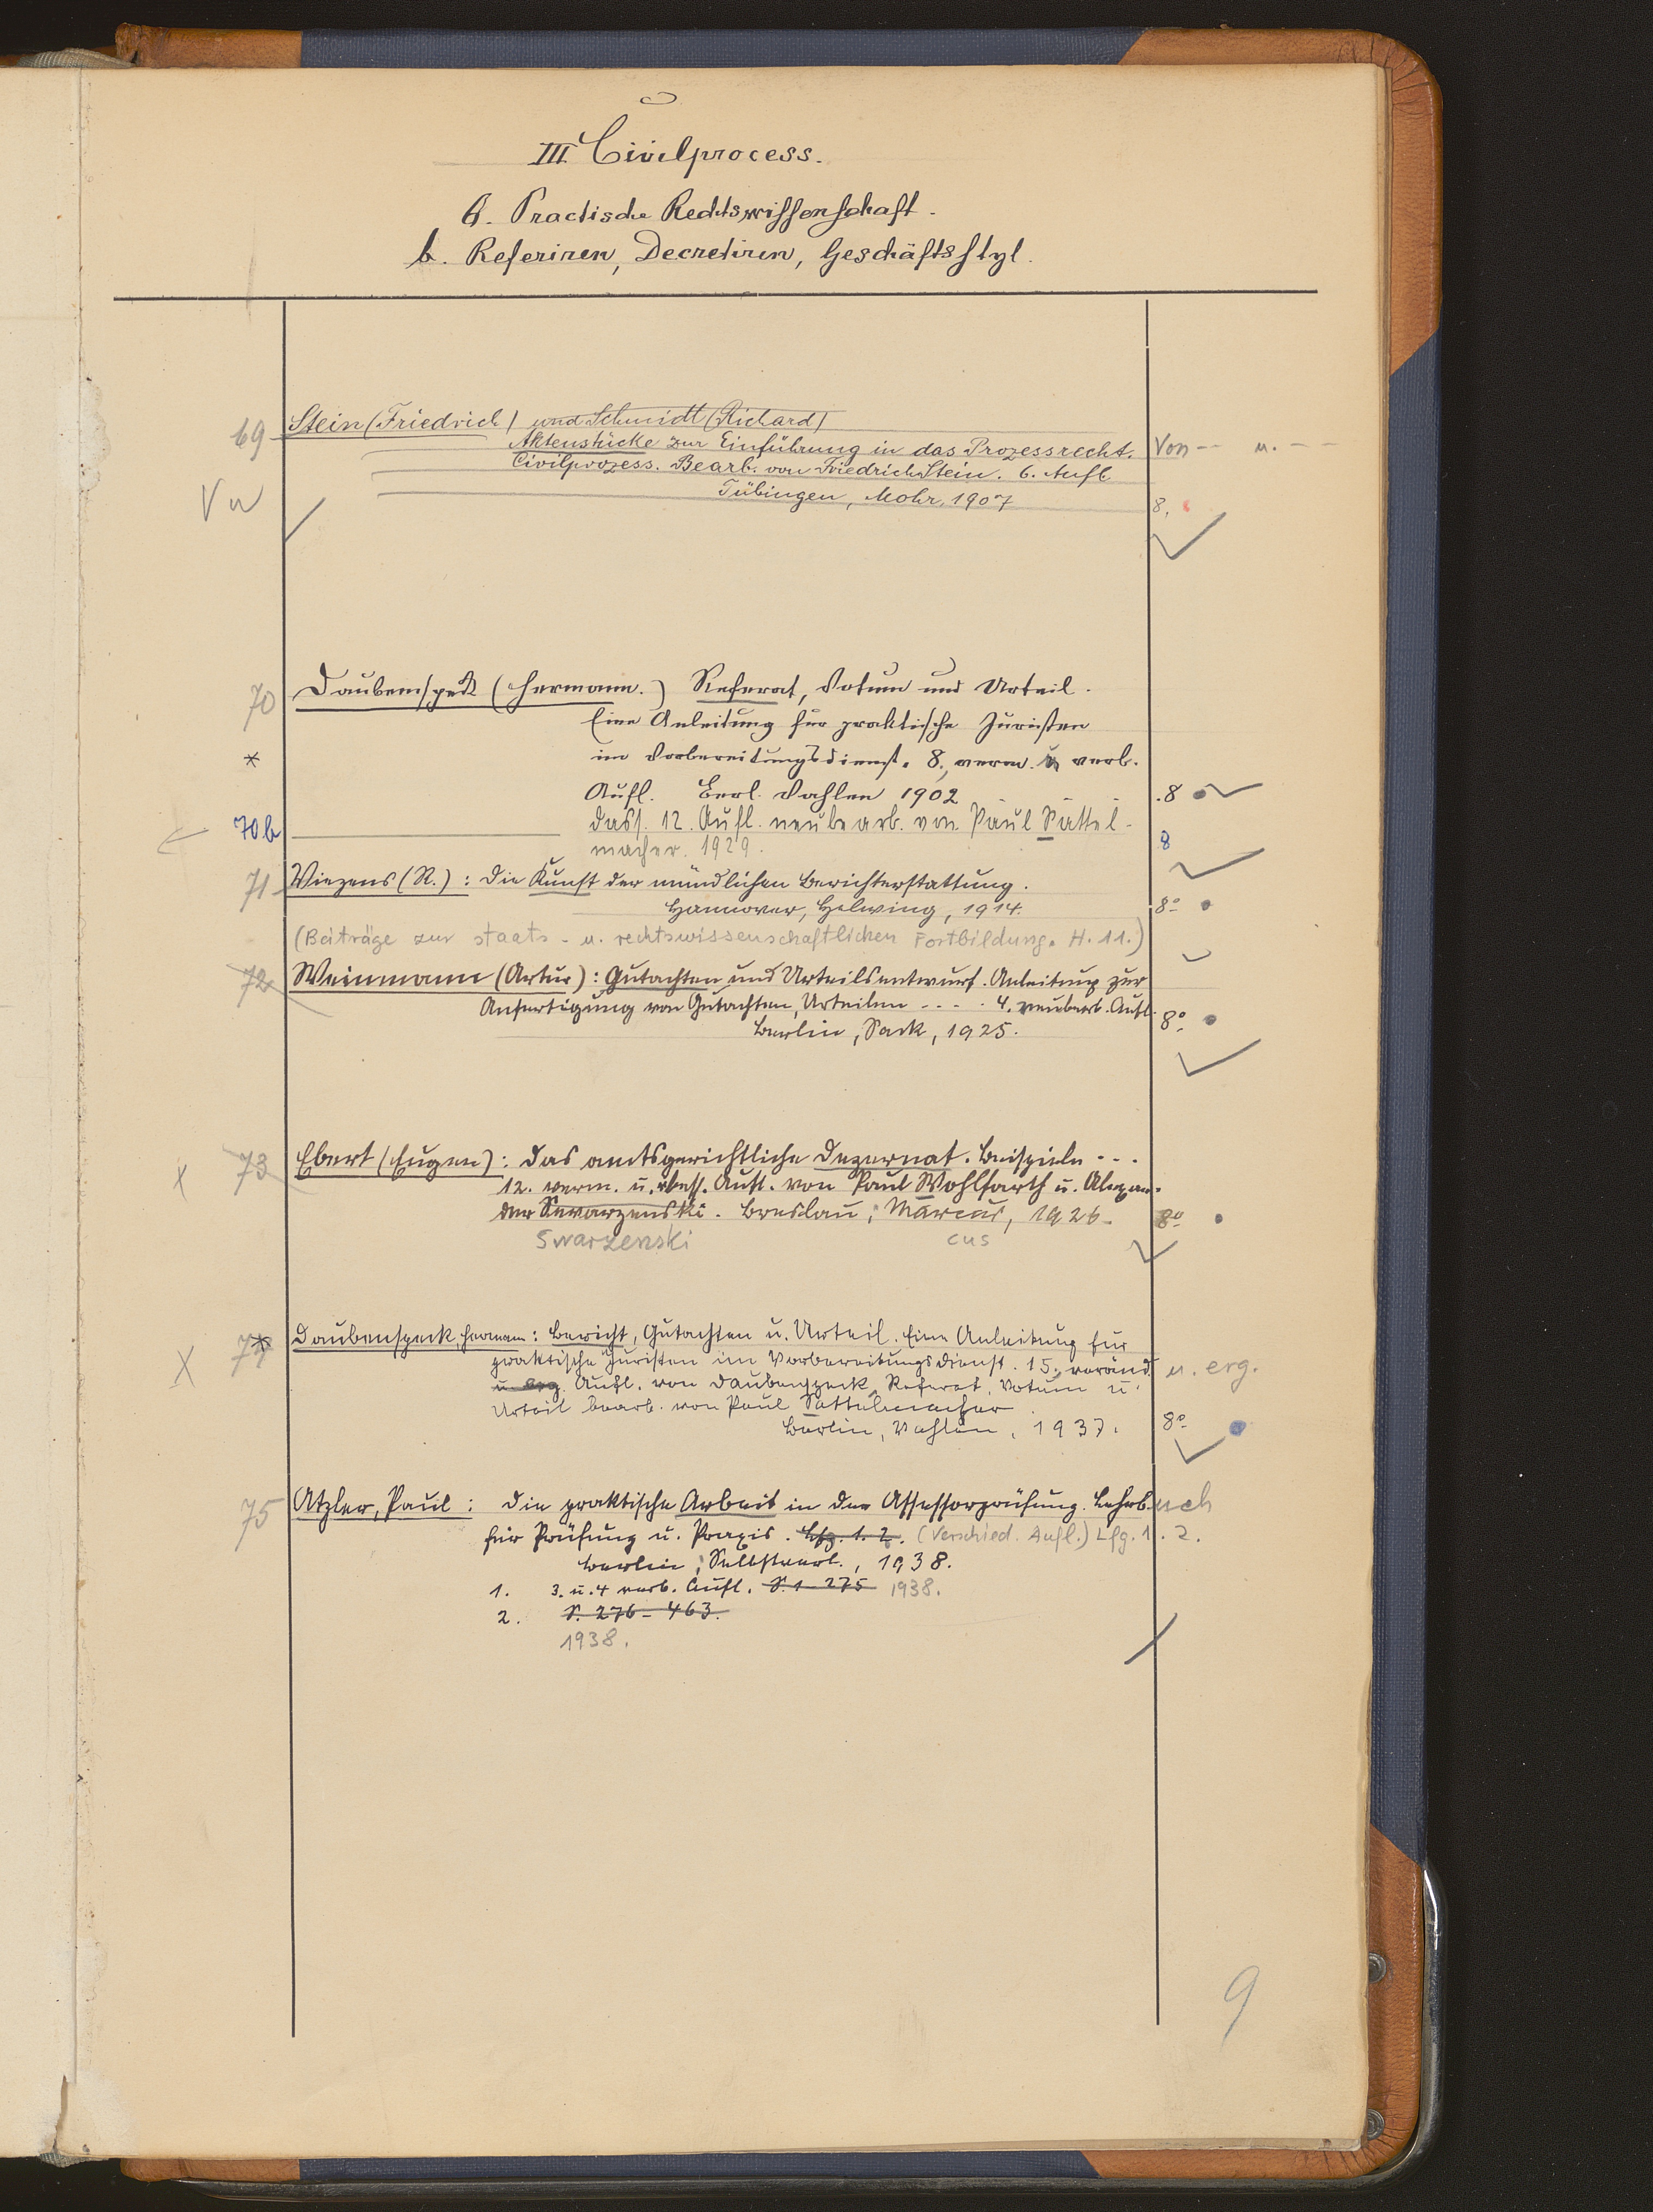 III Civilprocess.
6. Practische Rechtswissenschaft.
b. Referiren, Decretiren, Geschäftsstyl.
69 Stein (Friedrich) und Schmidt (Richard)
Aktenstücke zur Einführung in das Prozessrecht. Von -- u. --
Civilprozess. Bearb. von Friedrich Stein. 6. Aufl.
Tübingen, Mohr, 1907 8.
70 Daubenspeck (Hermann.) Referat, Votum und Urteil.
Eine Anleitung für praktische Juristen
* im Vorbereitungsdienst. 8., verm. u. verb.
Aufl. Berl. Vahlen 1902 .8
70b dass. 12. Aufl. neubearb. von Paul Sattel-
macher. 1929. 8
71 Wiezens (R.): Die Kunst der mündlichen Berichterstattung.
Hannover, Helwing, 1914. 8º
(Beiträge zur staats- u. rechtswissenschaftlichen Fortbildung. H. 11.)
72 Weinmann (Artur): Gutachten und Urteilsentwurf. Anleitung zur
Anfertigung von Gutachten, Urteilen .... 4. neubearb. Aufl.
Berlin, Sack, 1925. 8º
X 73 Ebert (Eugen): Das amtsgerichtliche Dezernat. Beispiele ...
12. verm. u. verbess. Aufl. von Paul Wohlfarth u. Alexan-
der Swarzenski. Breslau, Marcus, 1926. 8º
Swarzenski cus
X 74 * Daubenspeck, Hermann: Bericht, Gutachten u. Urteil. Eine Anleitung für
praktische Juristen im Vorbereitungsdienst. 15., veränd. u. erg.
u. erg. Aufl. von Daubenspeck, Referat, Votum u.
Urteil bearb. von Paul Sattelmacher.
Berlin, Vahlen, 1937. 8º
75 Atzler, Paul: Die praktische Arbeit in der Assessorprüfung. Lehrb. uch
für Prüfung u. Praxis. Lfg. 1. 2. (Verschied. Aufl.) Lfg. 1. 2.
Berlin: Selbstverl., 1938.
1. 3. u. 4 verb. Aufl. S. 1-275 1938.
2. S. 276-463.
1938.
9